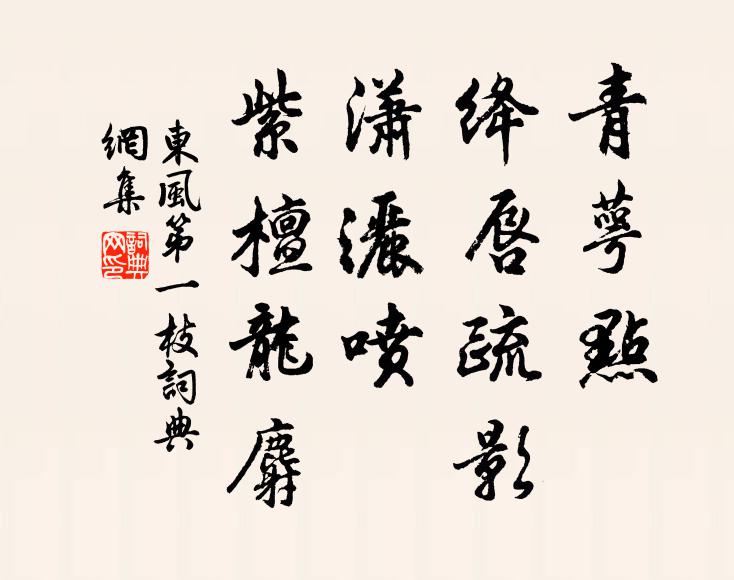 青萼點
絳唇疏影
瀟灑噴
紫檀龍麝
東風第一枝詞典
網集
詞典